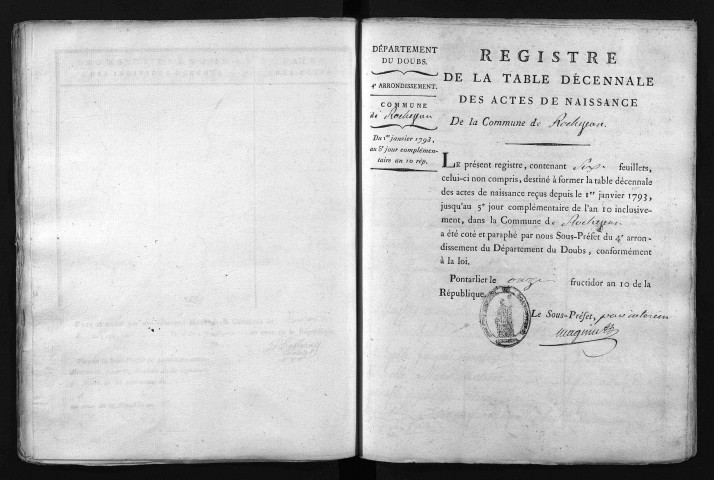 DÉPARTEMENT
DU DOUBS.
4e ARRONDISSEMENT.
COMMUNE
de Rochejean
Du 1er janvier 1793,
au 5e jour complémen-
taire an 10 rép.
REGISTRE
DE LA TABLE DÉCENNALE
DES ACTES DE NAISSANCE
De la Commune de Rochejean.
LE présent registre, contenant six feuillets,
celui-ci non compris, destiné à former la table décennale
des actes de naissance reçus depuis le 1er janvier 1793,
jusqu'au 5e jour complémentaire de l'an 10 inclusive-
ment, dans la Commune de Rochejean
a été coté et paraphé par nous Sous-Préfet du 4e arron-
dissement du Département du Doubs, conformément
à la loi.
Pontarlier le onze fructidor an 10 de la
République.
Le Sous-Préfet, par interim
Magnin